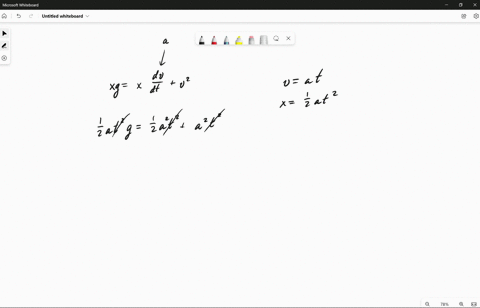 Microsoft Whiteboard
Untitled whiteboard
a
↓
xg = x dv/dt + v²
v = at
x = 1/2 at²
1/2 at² g = 1/2 a²t² + a²t²
78%